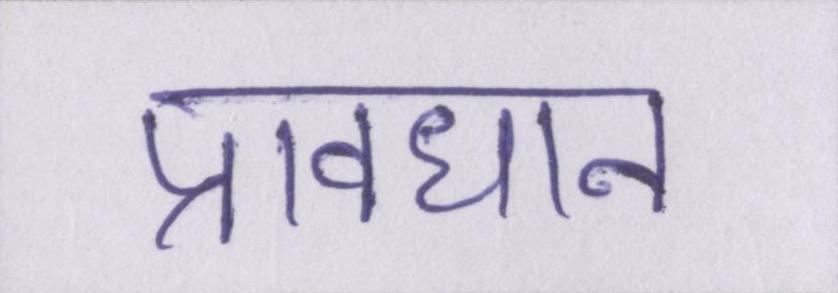 प्रावधान